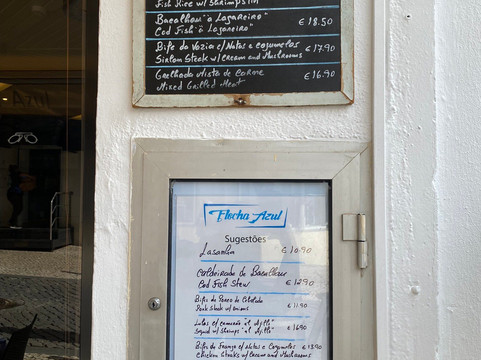 Fish Rice w/ Shrimps in
Bacalhau "à Lagareiro"
Cod Fish "à Lagareiro" € 18.50
Bife da Vazia c/ Natas e cogumelos
Sirloin Steak w/ Cream and Mushrooms € 17.90
Grelhada Mista de Carne
Mixed Grilled Meat € 16.90
Flocha Azul
Sugestões
Lasanha € 10.90
Caldeirada de Bacalhau
Cod Fish Stew € 12.90
Bife de Porco de Cebolada
Pork Steak w/ onions € 11.90
Lulas c/ camarão "al Ajillo"
Squid w/ Shrimps "al Ajillo" € 16.90
Bife de Frango c/ Natas e Cogumelos
Chicken Steaks w/ Cream and Mushrooms € 13.90